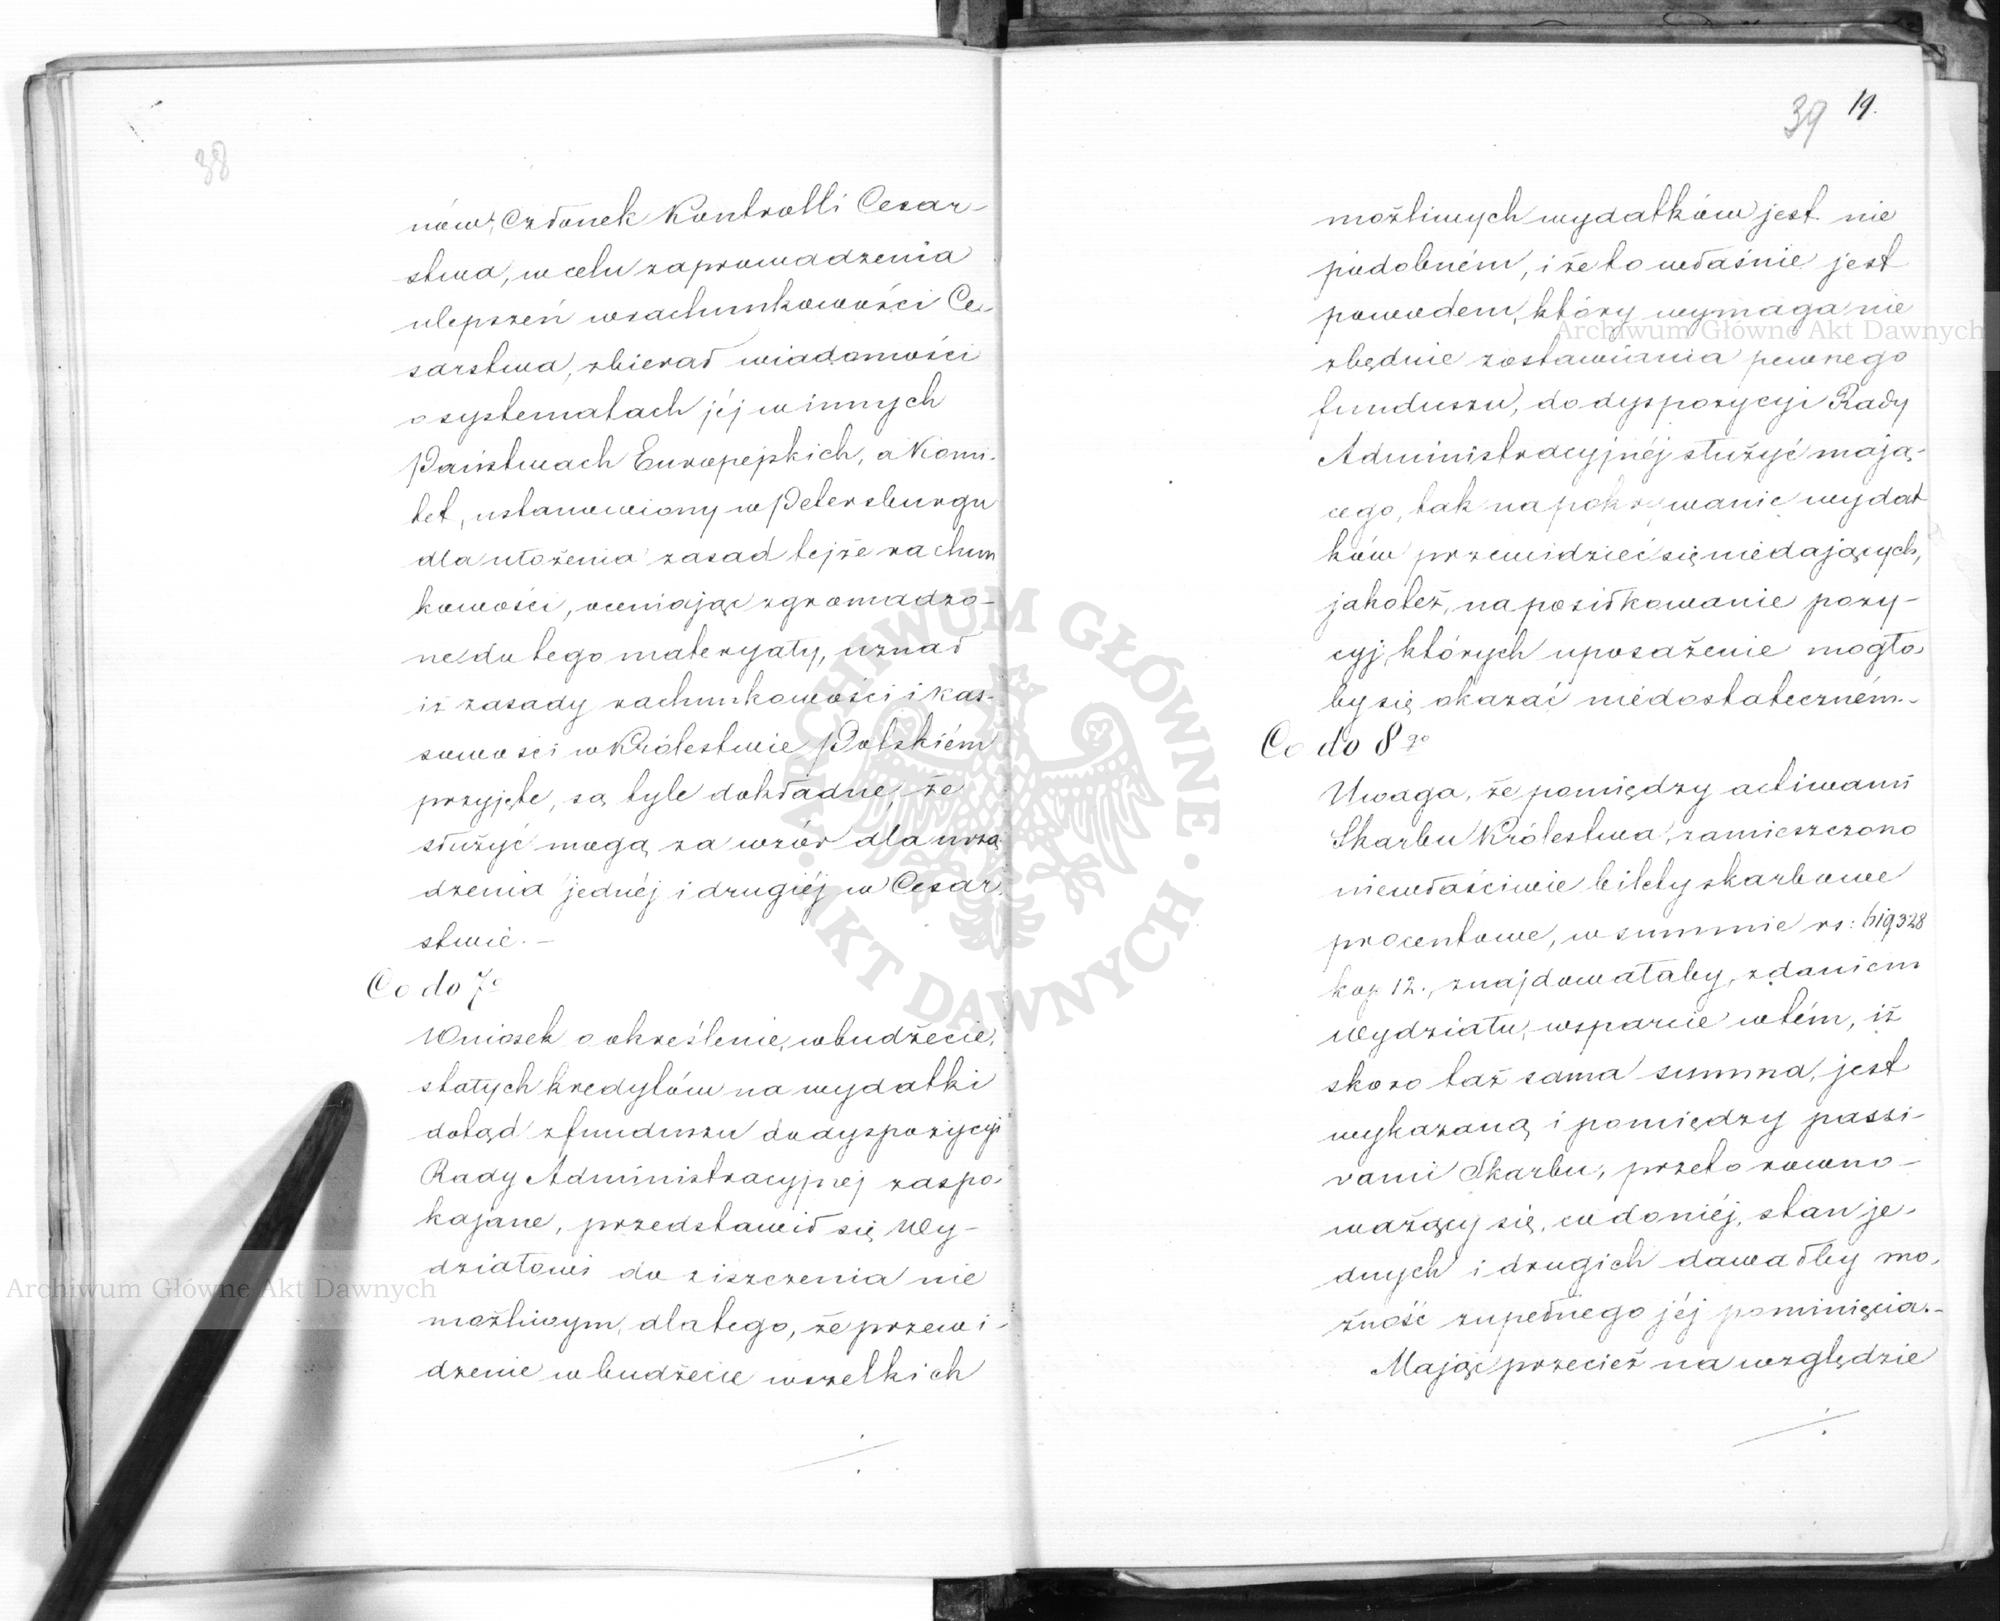 38
nów, Członek Kontrolli Cesar-
stwa, w celu zaprowadzenia
ulepszeń w rachunkowości Ce-
sarstwa, zbierał wiadomości
o systematach jéj w innych
Państwach Europejskich, a Komi-
tet, ustanowiony w Petersburgu
dla ułożenia zasad tejże rachun
kowości, oceniając zgromadzo-
ne do tego materyały, uznał
iż zasady rachunkowości i kas-
sowości w Królestwie Polskiém
przyjęte, są tyle dokładne, że
służyć mogą za wzór dla urzą
dzenia jednéj i drugiéj w Cesar
stwie. -
Co do 7o
Wniosek o określenie, w budżecie,
stałych kredytów na wydatki
dotąd z funduszu do dyspozycyi
Rady Administracyjnéj zaspo-
kajane, przedstawił się Wy-
działowi do ziszczenia nie
możliwym, dlatego, że przewi-
dzenie w budżecie wszelkich
39 19.
możliwych wydatków jest nie
podobném, i że to właśnie jest
powodem, który wymaga nie
zbędnie zostawiania pewnego
funduszu, do dyspozycyi Rady
Administracyjnéj służyć mają-
cego, tak na pokrywanie wydat
ków przewidzieć się niedających,
jakoteż, na posiłkowanie pozy-
cyj, których uposażenie mogło
by się okazać niedostateczném. -
Co do 8go
Uwaga, że pomiędzy activami
Skarbu Królestwa, zamieszczono
niewłaściwie bilety skarbowe
procentowe, w summie rs: 619,328
kop 12., znajdowałaby, zdaniem
Wydziału, wsparcie w tém, iż
skoro taż sama summa, jest
wykazaną i pomiędzy passi-
vami Skarbu, przeto równo-
ważący się, co do niéj, stan je-
dnych i drugich dawałby mo-
żność zupełnego jéj pominięcia. -
Mając przecież na względzie
ARCHIWUM GŁÓWNE
AKT DAWNYCH
Archiwum Główne Akt Dawnych
Archiwum Główne Akt Dawnych